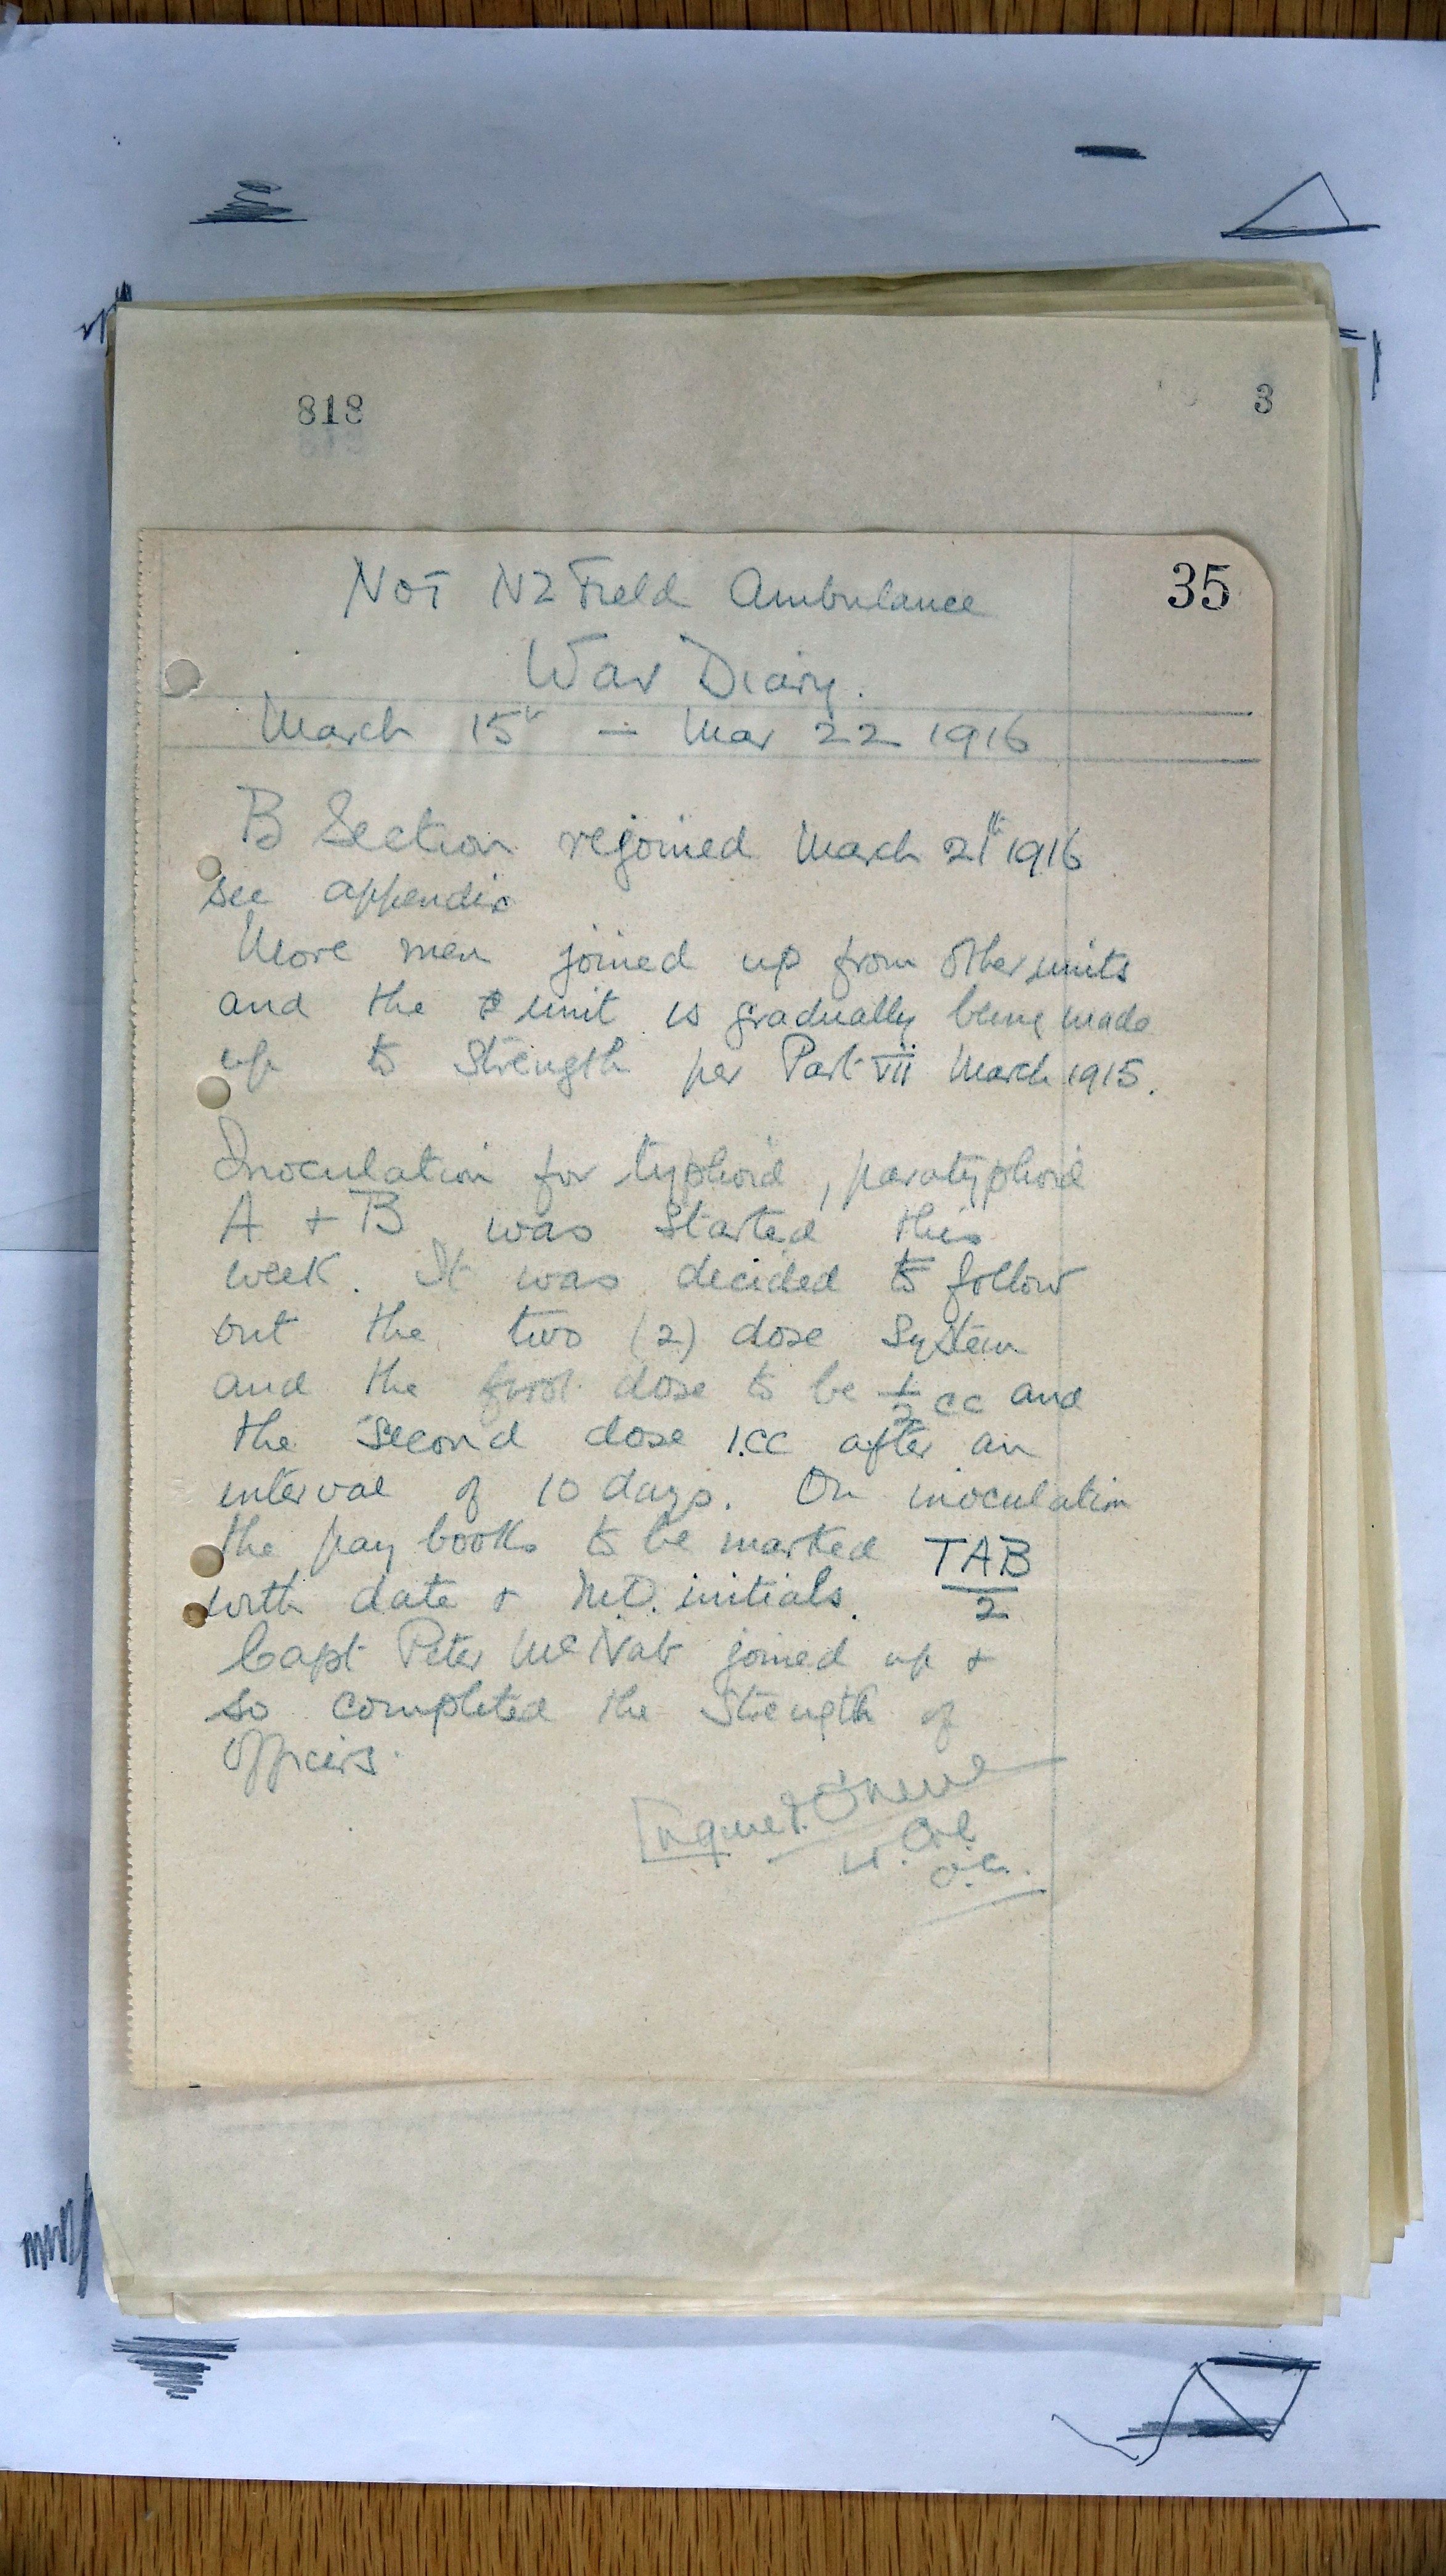 818
3
35
NOT NZ Field Ambulance
War Diary.
March 15th — Mar 22 1916
B Section rejoined March 21st 1916
see appendix
More men joined up from other units
and the unit is gradually being made
up to strength per Part VII March 1915.
Inoculation for typhoid, paratyphoid
A + B was started this
week. It was decided to follow
out the two (2) dose system
and the first dose to be 1/2 cc and
the second dose 1.cc after an
interval of 10 days. On inoculation
the pay books to be marked TAB/2
with date + M.O. initials.
Capt Peter McNab joined up +
so completed the strength of
officers.
Lt. Col
O.C.